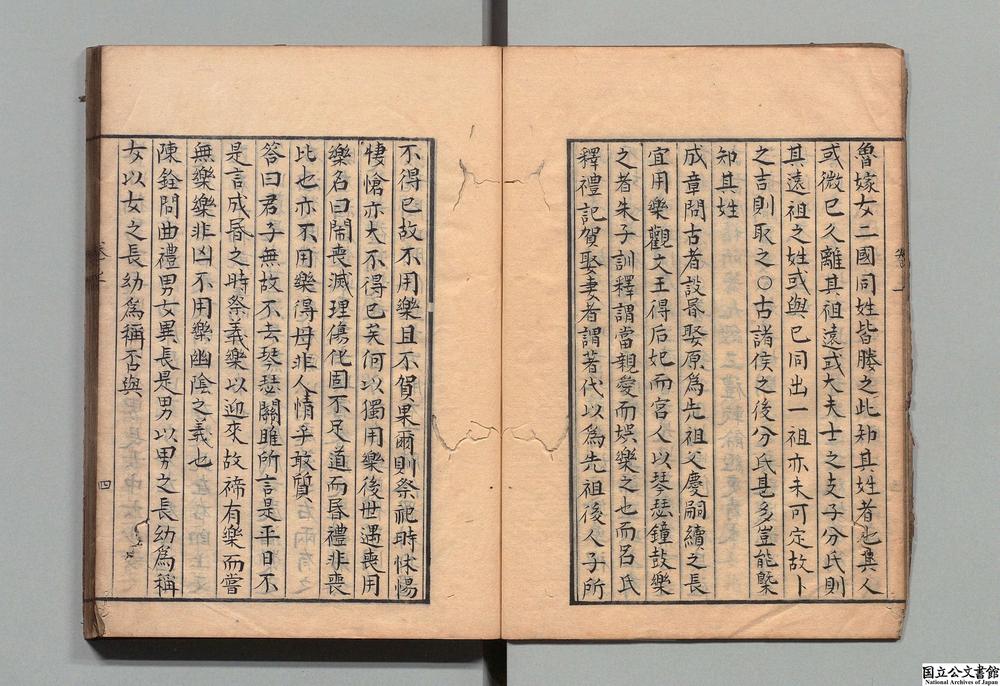 魯嫁女二國同姓皆媵之此知其姓者也異人
或微已久離其祖遠或大夫士之支子分氏則
其遠祖之姓或與已同出一祖亦未可定故卜
之吉則取之〇古諸侯之後分氏甚多豈能槩
知其姓
成章問古者設昬娶原爲先祖父慶嗣續之長
宜用樂觀文王得后妃而宮人以琴瑟鐘鼓樂
之者朱子訓釋謂當親愛而娛樂之也而呂氏
釋禮記賀娶妻者謂著代以爲先祖後人子所
不得已故不用樂且不賀果爾則祭祀時怵惕
悽愴亦大不得已矣何以獨用樂後世遇喪用
樂名曰鬧喪滅理傷化固不足道而昬禮非喪
比也亦不用樂得毋非人情乎敢質
答曰君子無故不去琴瑟關雎所言是平日不
是言成昬之時祭義樂以迎來故禘有樂而嘗
無樂樂非凶不用樂幽陰之義也
陳銓問曲禮男女異長是男以男之長幼爲稱
女以女之長幼爲稱否與
四
国立公文書館
National Archives of Japan